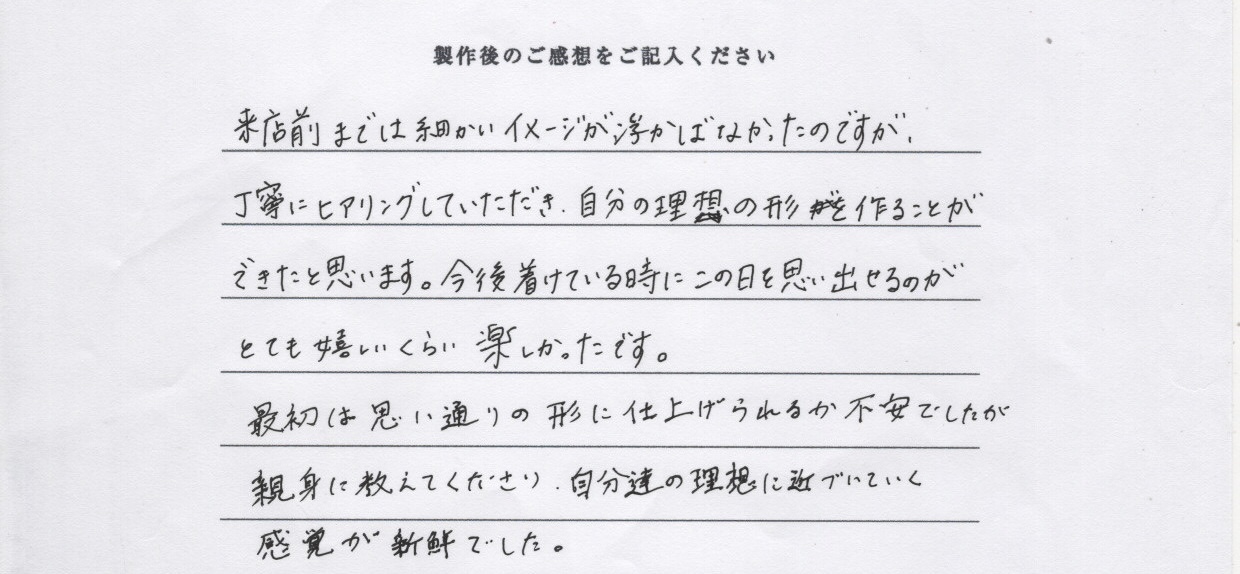 製作後のご感想をご記入ください
来店前までは細かいイメージが浮かばなかったのですが、
丁寧にヒアリングしていただき、自分の理想の形を作ることが
できたと思います。今後着けている時にこの日を思い出せるのが
とても嬉しいくらい楽しかったです。
最初は思い通りの形に仕上げられるか不安でしたが
親身に教えてくださり、自分達の理想に近づいていく
感覚が新鮮でした。